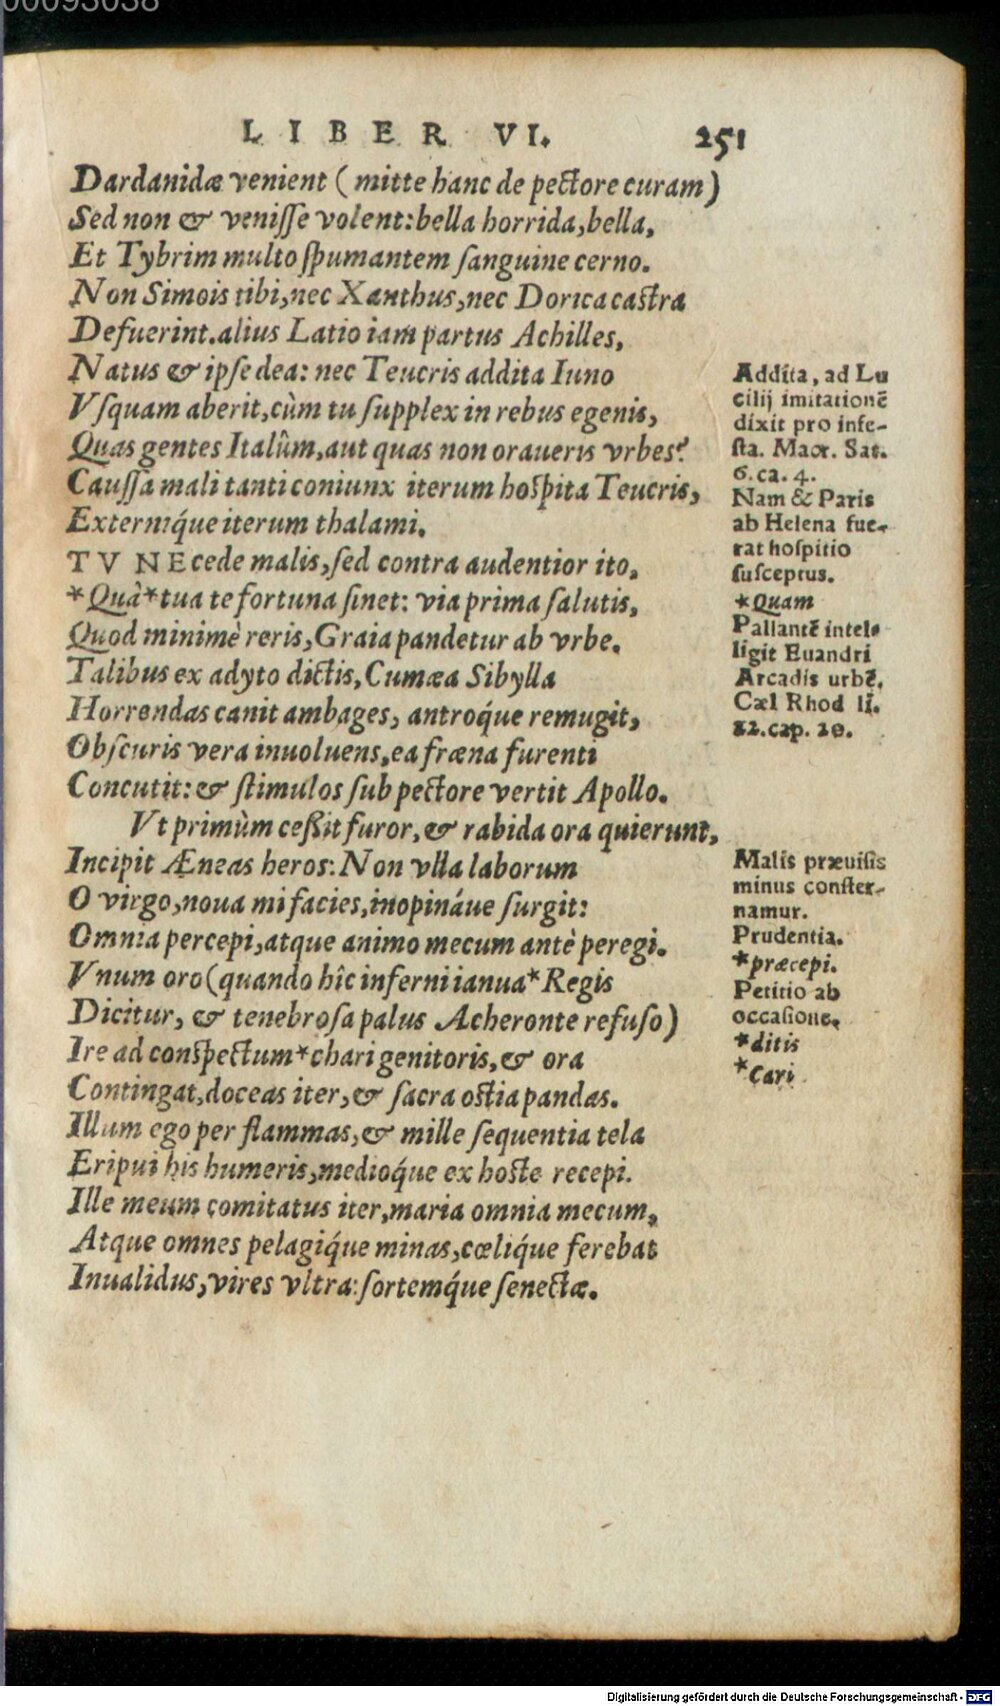 00093038
LIBER VI. 251
Dardanidæ venient (mitte hanc de pectore curam)
Sed non & venisse volent: bella horrida, bella,
Et Tybrim multo spumantem sanguine cerno.
Non Simois tibi, nec Xanthus, nec Dorica castra
Defuerint. alius Latio iam partus Achilles,
Natus & ipse dea: nec Teucris addita Iuno
Vsquam aberit, cùm tu supplex in rebus egenis,
Quas gentes Italûm, aut quas non oraueris vrbes?
Caussa mali tanti coniunx iterum hospita Teucris,
Externiq́ue iterum thalami.
TV NE cede malis, sed contra audentior ito,
*Quà*tua te fortuna sinet: via prima salutis,
Quod minimè reris, Graia pandetur ab vrbe.
Talibus ex adyto dictis, Cumæa Sibylla
Horrendas canit ambages, antroq́ue remugit,
Obscuris vera inuoluens, ea fræna furenti
Concutit: & stimulos sub pectore vertit Apollo.
Vt primùm cessit furor, & rabida ora quierunt,
Incipit Æneas heros: Non vlla laborum
O virgo, noua mi facies, inopináue surgit:
Omnia percepi, atque animo mecum antè peregi.
Vnum oro (quando hîc inferni ianua*Regis
Dicitur, & tenebrosa palus Acheronte refuso)
Ire ad conspectum*chari genitoris, & ora
Contingat, doceas iter, & sacra ostia pandas.
Illum ego per flammas, & mille sequentia tela
Eripui his humeris, medioq́ue ex hoste recepi.
Ille meum comitatus iter, maria omnia mecum,
Atque omnes pelagiq́ue minas, cœliq́ue ferebat
Inualidus, vires vltra: sortemq́ue senectæ.
Addita, ad Lu
cilij imitationē
dixit pro infe-
sta. Macr. Sat.
6. ca. 4.
Nam & Paris
ab Helena fue-
rat hospitio
susceptus.
*Quam
Pallantē intel-
ligit Euandri
Arcadis urbē.
Cæl Rhod li.
22. cap. 20.
Malis præuisis
minus conster-
namur.
Prudentia.
*præcepi.
Petitio ab
occasione.
*ditis
*Cari
Digitalisierung gefördert durch die Deutsche Forschungsgemeinschaft - DFG